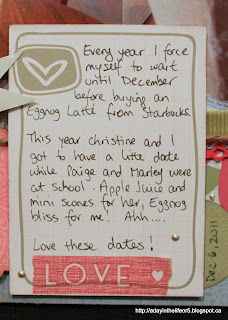 Every year I force
myself to wait
until December
before buying an
Eggnog Latté from Starbucks.
This year christine and I
got to have a little date
while Paige and Marley were
at school. Apple Juice and
mini scones for her, Eggnog
bliss for me! Ahh....
Love these dates!
LOVE
Dec 6, 2011
http://adayinthelifeor5.blogspot.ca